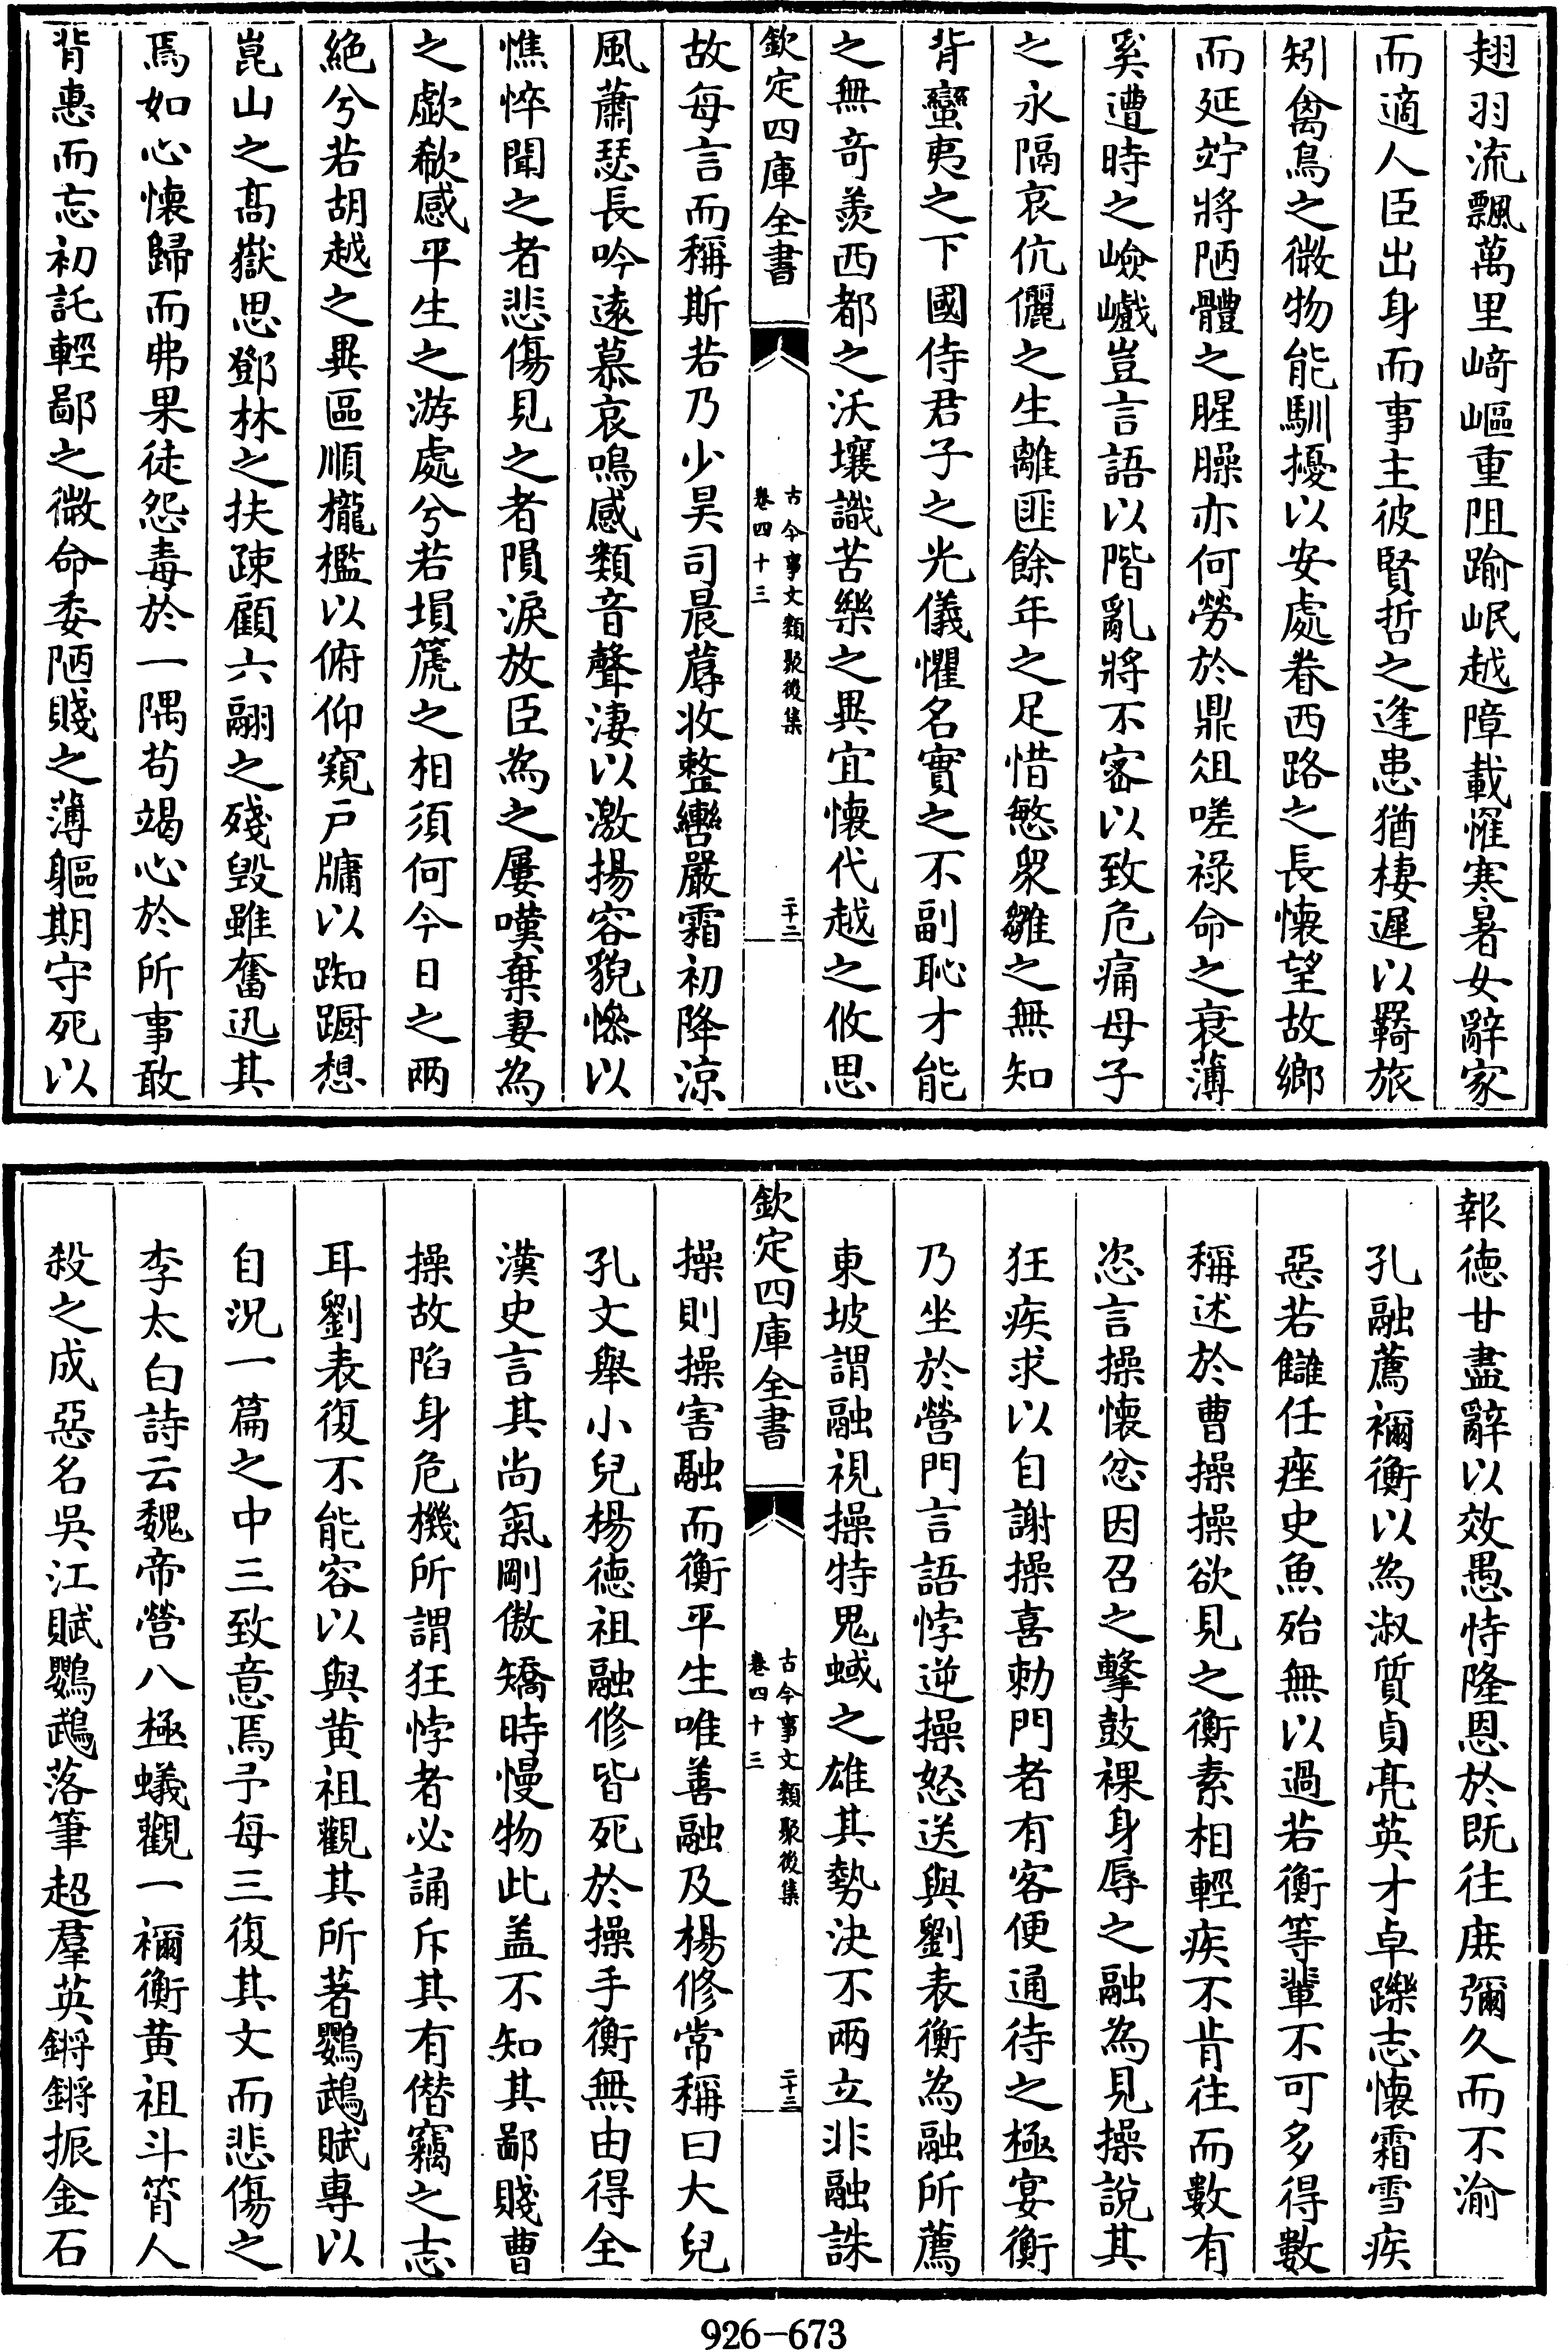 翅羽流飄萬里崎嶇重阻踰岷越障載罹寒暑女辭家
而適人臣出身而事主彼賢哲之逢患猶棲遲以羇旅
矧禽鳥之微物能馴擾以安處眷西路之長懷望故鄉
而延竚將陋體之腥臊亦何勞於鼎俎嗟祿命之衰薄
奚遭時之嶮巇豈言語以階亂將不宻以致危痛母子
之永隔哀伉儷之生離匪餘年之足惜慜衆雛之無知
背蠻夷之下國侍君子之光儀懼名實之不副恥才能
之無竒羨西都之沃壤識苦樂之異宜懐代越之攸思
欽定四庫全書
古今事文類聚後集
卷四十三
二十二
故每言而稱斯若乃少昊司晨蓐收整轡嚴霜初降凉
風蕭瑟長吟逺慕哀鳴感類音聲淒以激揚容貌惨以
憔悴聞之者悲傷見之者隕淚放臣為之屢嘆棄妻為
之歔欷感平生之游處兮若塤箎之相須何今日之兩
絶兮若胡越之異區順櫳檻以俯仰窺户牖以踟蹰想
崑山之髙嶽思鄧林之扶疎顧六翮之殘毁雖奮迅其
焉如心懐歸而弗果徒怨毒於一隅苟竭心於所事敢
背惠而忘初託輕鄙之微命委陋賤之薄軀期守死以
報徳甘盡辭以效愚恃隆恩於既往庶彌久而不渝
孔融薦禰衡以為淑質貞亮英才卓躒志懐霜雪疾
惡若讎任座史魚殆無以過若衡等輩不可多得數
稱述於曹操操欲見之衡素相輕疾不肯往而數有
恣言操懐忿因召之擊鼓裸身辱之融為見操說其
狂疾求以自謝操喜勑門者有客便通待之極宴衡
乃坐於營門言語悖逆操怒送與劉表衡為融所薦
東坡謂融視操特鬼蜮之雄其勢決不兩立非融誅
欽定四庫全書
古今事文類聚後集
卷四十三
二十三
操則操害融而衡平生唯善融及楊修常稱曰大兒
孔文舉小兒楊徳祖融修皆死於操手衡無由得全
漢史言其尚氣剛傲矯時慢物此盖不知其鄙賤曹
操故陷身危機所謂狂悖者必誦斥其有僣竊之志
耳劉表復不能容以與黄祖觀其所著鸚鵡賦專以
自況一篇之中三致意焉予每三復其文而悲傷之
李太白詩云魏帝營八極蟻觀一禰衡黄祖斗筲人
殺之成惡名吳江賦鸚鵡落筆超羣英鏘鏘振金石
926-673